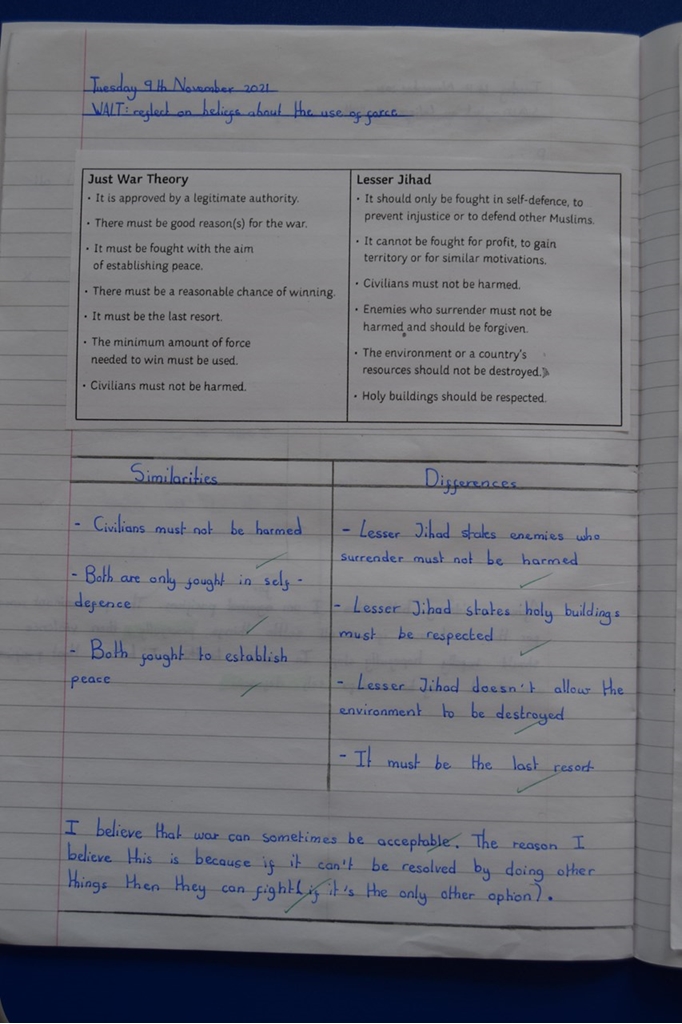 Tuesday 9th November 2021
WALT: reflect on beliefs about the use of force
Just War Theory
· It is approved by a legitimate authority.
· There must be good reason(s) for the war.
· It must be fought with the aim
of establishing peace.
· There must be a reasonable chance of winning.
· It must be the last resort.
· The minimum amount of force
needed to win must be used.
· Civilians must not be harmed.
Lesser Jihad
· It should only be fought in self-defence, to
prevent injustice or to defend other Muslims.
· It cannot be fought for profit, to gain
territory or for similar motivations.
· Civilians must not be harmed.
· Enemies who surrender must not be
harmed and should be forgiven.
· The environment or a country's
resources should not be destroyed.
· Holy buildings should be respected.
Similarities
- Civilians must not be harmed
- Both are only fought in self-
defence
- Both fought to establish
peace
Differences
- Lesser Jihad states enemies who
surrender must not be harmed
- Lesser Jihad states holy buildings
must be respected
- Lesser Jihad doesn't allow the
environment to be destroyed
- It must be the last resort
I believe that war can sometimes be acceptable. The reason I
believe this is because if it can't be resolved by doing other
things then they can fight(if it's the only other option).